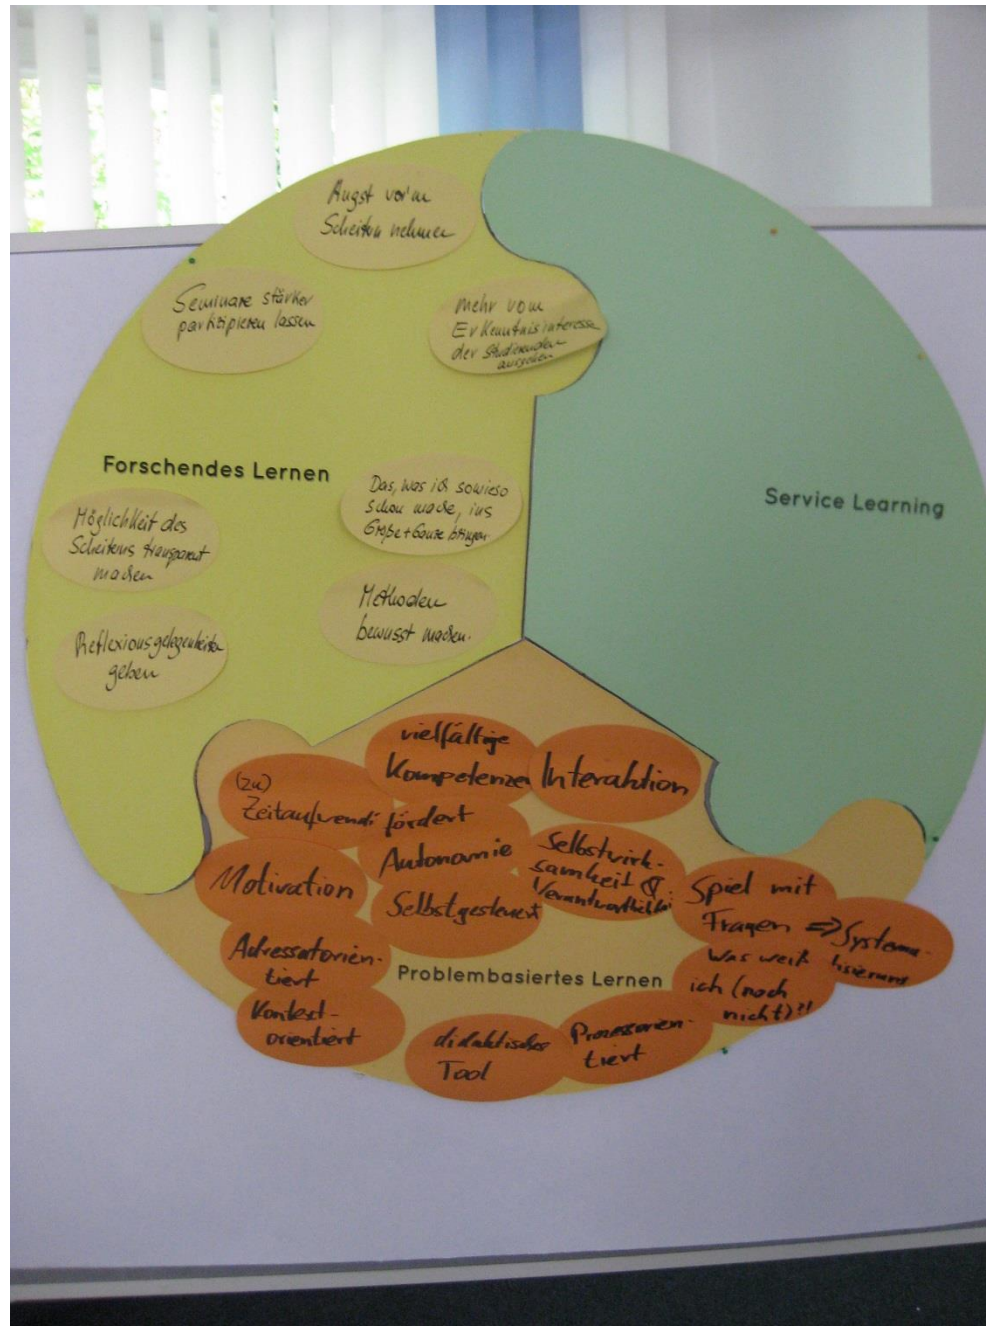 Angst vor'm
Scheitern nehmen
Seminare stärker
partizipieren lassen
mehr vom
Erkenntnisinteresse
der Studierenden
ausgehen
Forschendes Lernen
Das, was ich sowieso
schon mache, ins
Große+Ganze bringen.
Möglichkeit des
Scheiterns transparent
machen
Methoden
bewusst machen.
Reflexionsgelegenheiten
geben
Service Learning
vielfältige
Kompetenzen
Interaktion
(zu)
Zeitaufwendi
fördert
Autonomie
Selbstgesteuert
Selbstwirk-
samkeit &
Verantwortlichk
Motivation
Spiel mit
Fragen => Systema-
tisierung
Was weiß
ich (noch
nicht)?!
Adressatorien-
tiert
Problembasiertes Lernen
Kontext-
orientiert
didaktisches
Tool
Prozessorien-
tiert